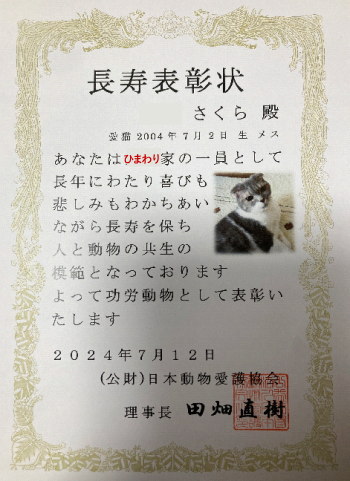 長寿表彰状
さくら 殿
愛猫2004年7月2日生 メス
あなたはひまわり家の一員として
長年にわたり喜びも
悲しみもわかちあい
ながら長寿を保ち
人と動物の共生の
模範となっております
よって功労動物として表彰い
たします
2024年7月12日
(公財)日本動物愛護協会
理事長 田畑直樹